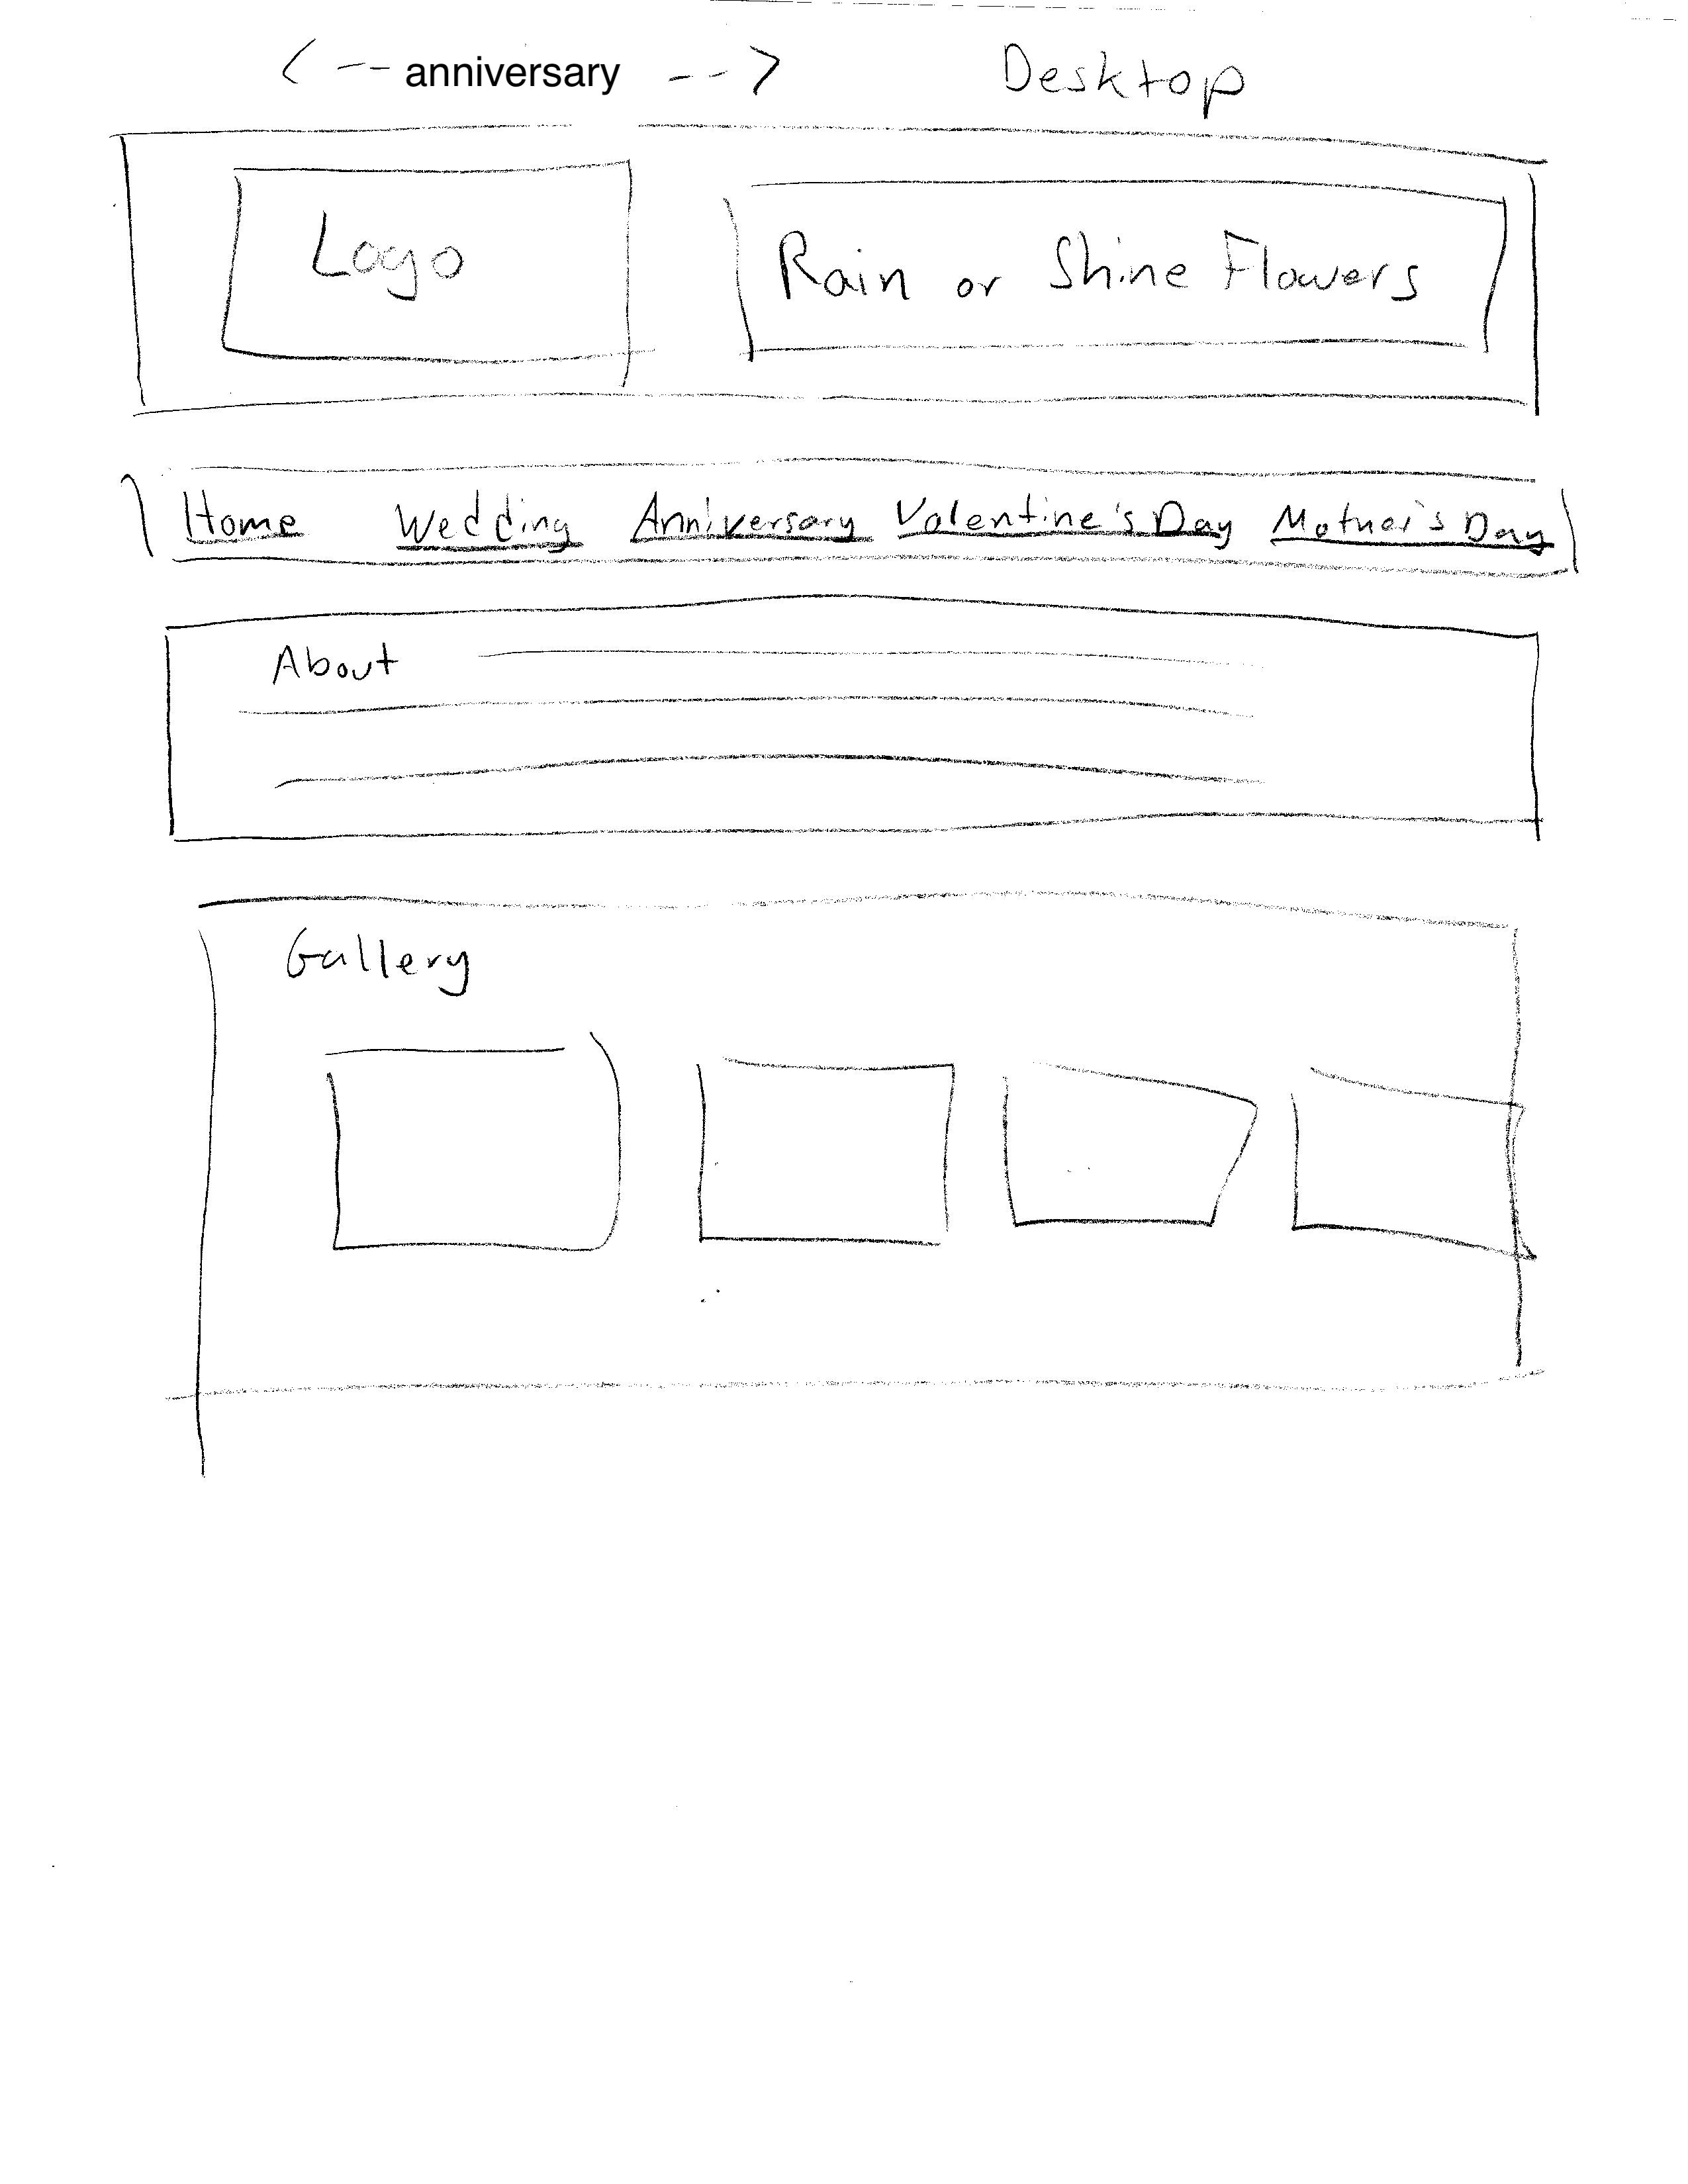 <-- anniversary --> Desktop
Logo
Rain or Shine Flowers
Home Wedding Anniversary Valentine's Day Mother's Day
About
Gallery